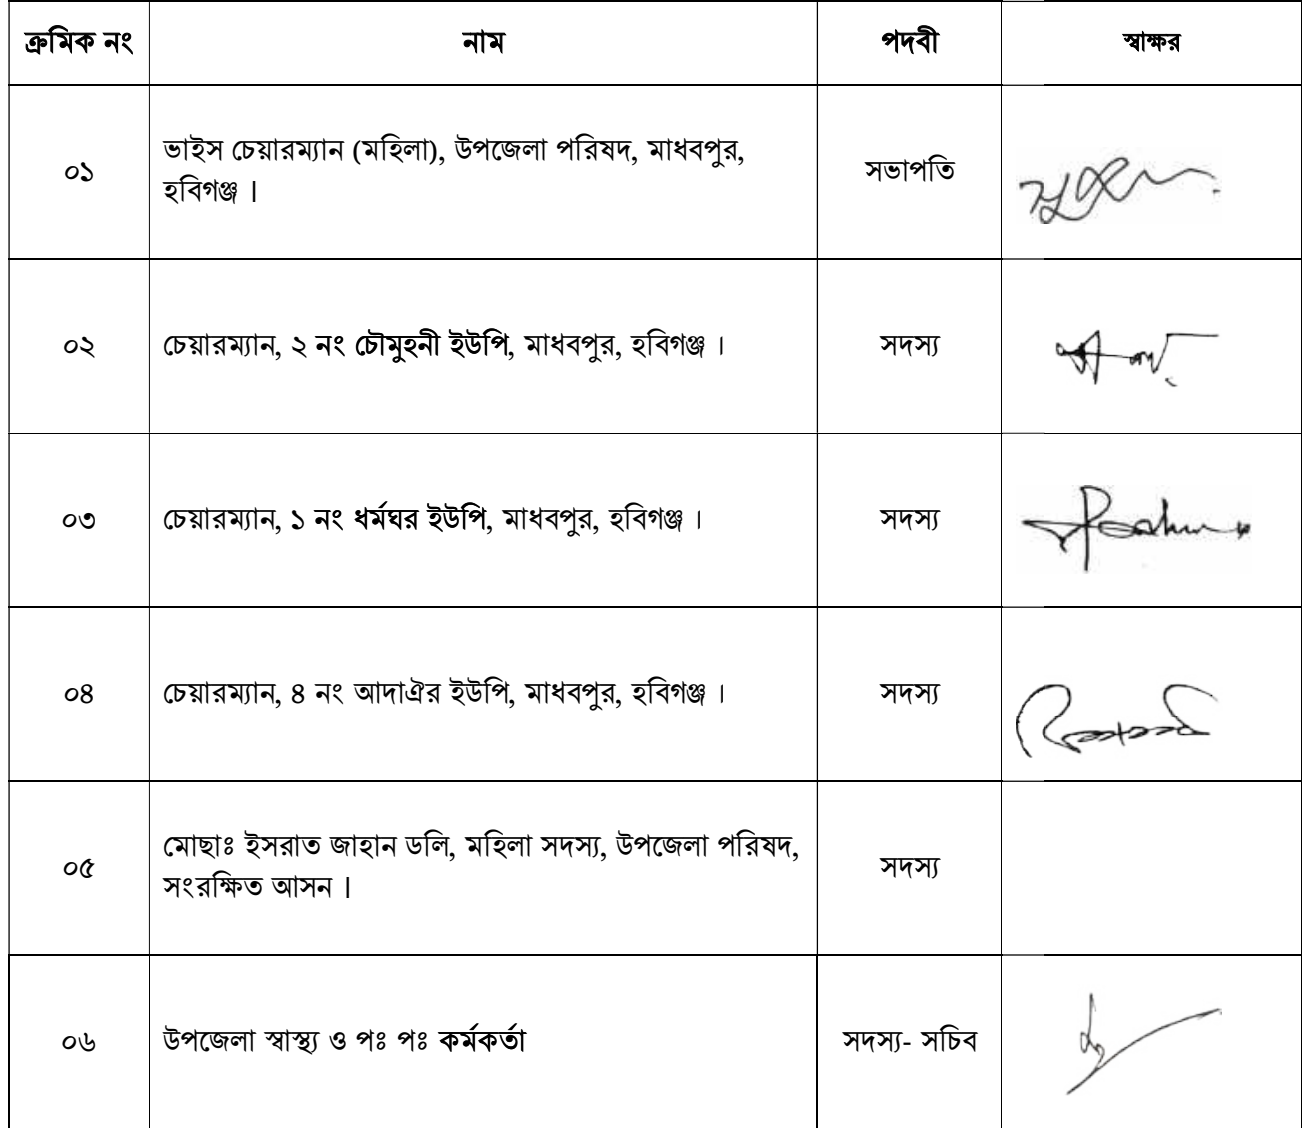 ক্রমিক নং নাম পদবী স্বাক্ষর
০১ ভাইস চেয়ারম্যান (মহিলা), উপজেলা পরিষদ, মাধবপুর, সভাপতি
হবিগঞ্জ ।
০২ চেয়ারম্যান, ২ নং চৌমুহনী ইউপি, মাধবপুর, হবিগঞ্জ । সদস্য
০৩ চেয়ারম্যান, ১ নং ধর্মঘর ইউপি, মাধবপুর, হবিগঞ্জ । সদস্য
০৪ চেয়ারম্যান, ৪ নং আদাঐর ইউপি, মাধবপুর, হবিগঞ্জ । সদস্য
০৫ মোছাঃ ইসরাত জাহান ডলি, মহিলা সদস্য, উপজেলা পরিষদ, সদস্য
সংরক্ষিত আসন ।
০৬ উপজেলা স্বাস্থ্য ও পঃ পঃ কর্মকর্তা সদস্য- সচিব